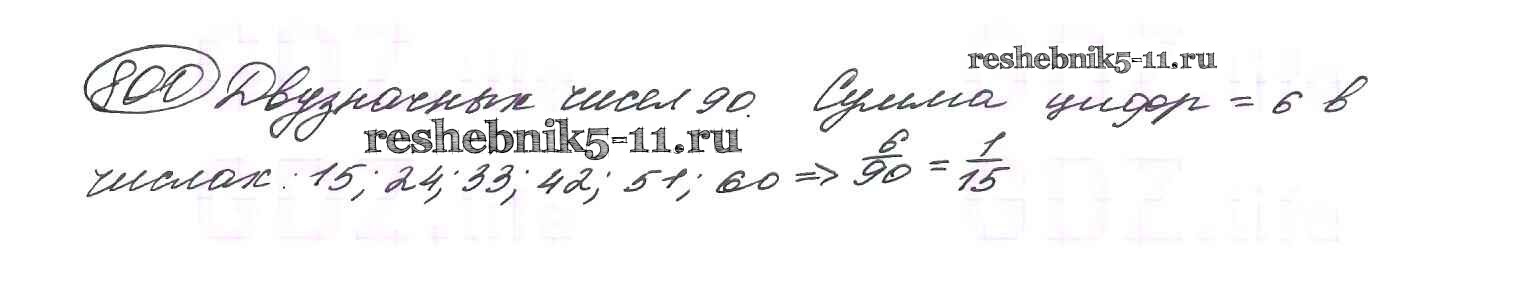 reshebnik5-11.ru
800 Двузначных чисел 90. Сумма цифр = 6 в
reshebnik5-11.ru
числах: 15; 24; 33; 42; 51; 60 => 6/90 = 1/15
GDZ.life GDZ.life